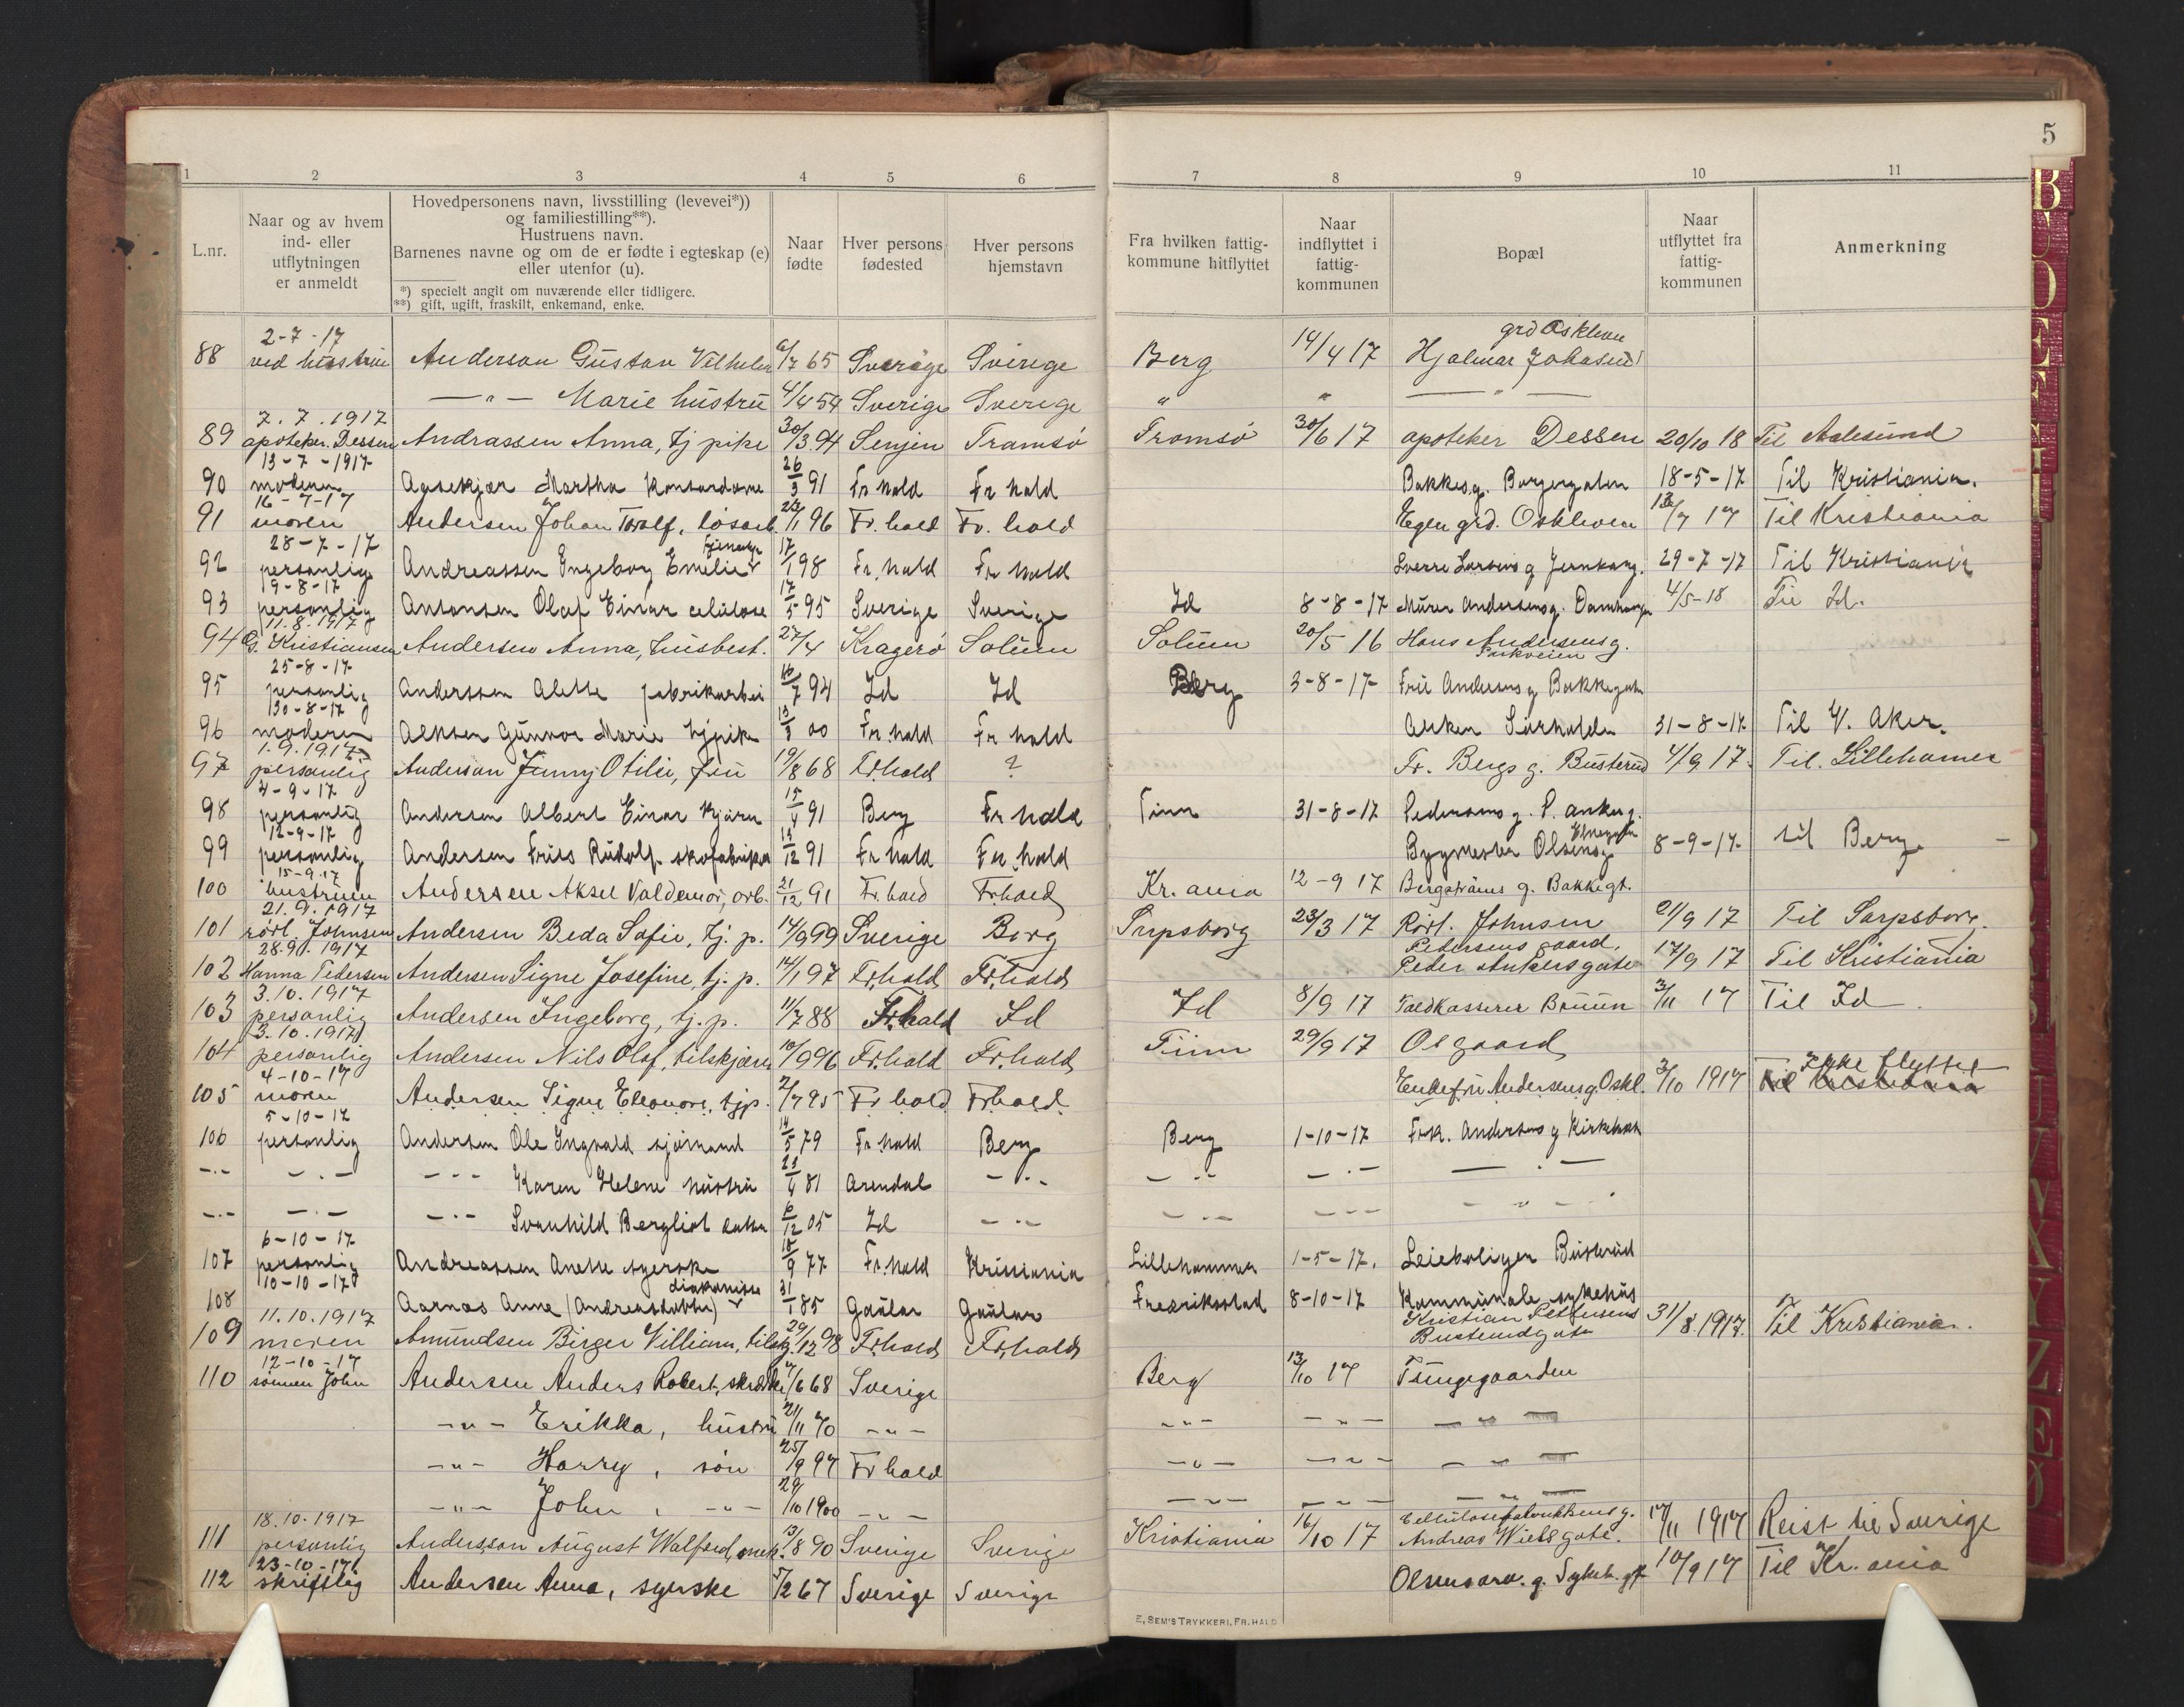 5
1 2 3 4 5 6 7 8 9 10 11
L.nr.
Naar og av hvem
ind- eller
utflytningen
er anmeldt
Hovedpersonens navn, livsstilling (levevei*))
og familiestilling**).
Hustruens navn.
Barnenes navne og om de er fødte i egteskap (e)
eller utenfor (u).
*) specielt angit om nuværende eller tidligere.
**) gift, ugift, fraskilt, enkemand, enke.
Naar
fødte
Hver persons
fødested
Hver persons
hjemstavn
Fra hvilken fattig-
kommune hitflyttet
Naar
indflyttet i
fattig-
kommunen
Bopæl
Naar
utflyttet fra
fattig-
kommunen
Anmerkning
2-7-17 grd Oskleven
88 ved hustru Anderson Gustav Vilhelm 6/7 65 Sverige Sverige Berg 14/4 17 Hjalmar Johansens
—"— Marie hustru 4/4 54 Sverige Sverige " " —"—
7.7.1917
89 apoteker Dessen Andrassen Anna, tj pike 30/3 94 Senjen Tromsö Tromsö 30/6 17 apoteker Dessen 20/10 18 Til Aalesund
13-7-1917
90 moderen Martha 26/3 91 Fr hald Fr hald Bakkesg. Borgergaten 18-5-17 Til Kristiania.
16-7-17
91 moren Andersen Johan Torolf, løsarb. 23/1 96 Fr. hald Fr. hald Egen grd. Oskleven 13/7 17 Til Kristiania
28-7-17
92 personlig Andreassen Ingeborg Emelie 17/1 98 Fr. hald Fr hald Sverre Larsens g 29-7-17 Til Kristiania
19-8-17
93 personlig Antonsen Olaf Einar celulose 17/5 95 Sverige Sverige Id 8-8-17 Murer Andersens g. Damhaugen 4/5-18 Til Id.
11.8.1917
94 G. Kristiansen Andersen Anna, husbest. 27/4 Kragerö Solum Solum 20/5 16 Hans Andersens g.
Parkveien
25-8-17
95 personlig Anderssen Alette fabrikarbei 16/7 94 Id Id Berg 3-8-17 Fru Andersens g Bakkegaten
30-8-17
96 moderen Alksen Gunvor Marie tjpike 13/3 00 Fr. hald Fr hald Sørhalden 31-8-17 Til V. Aker.
1.9.1917
97 personlig Anderson Jenny Otilie, fru 19/8 68 Fr.hald ? Fr. Bergs g. Busterud 4/9 17. Til Lillehamer
4-9-17
98 personlig Andersen Albert Einar kjører 15/4 91 Berg Fr hald Tinn 31-8-17 Pedersens g. P. ankerg.
12-9-17
99 personlig Andersen Friis Rudolf skofabrikar 13/12 91 Fr hald Fr hald Bygmester Olsens g 8-9-17 til Berg
15-9-17
100 hustruen Andersen Aksel Valdemar, arb. 21/12 91 Fr. hald Fr. hald Kr. ania 12-9 17 Bergstrøms g. Bakkegt.
21.9.1917
101 rörl. Johnsen Andersen Beda Sofie, tj. p. 14/9 99 Sverige Borg Sarpsborg 23/3 17 Rörl. Johnsen 21/9 17 Til Sarpsborg.
28.9.1917 Pedersens gaard,
102 Hanna Pedersen Andersen Signe Josefine, tj. p. 14/1 97 Fr.hald Fr.hald Peder Ankers gate 17/9 17 Til Kristiania
3.10.1917
103 personlig Andersen Ingeborg, tj. p. 11/7 88 Fr.hald Id Id 8/9 17 Toldkasserer Bruun 3/11 17 Til Id
3.10.1917
104 personlig Andersen Nils Olaf, tilskjærer 10/9 96 Fr.hald Fr.hald Tinn 29/9 17 Osgaard
4-10-17 Ikke flyttet
105 moren Andersen Signe Eleonore, tjp. 2/7 95 Fr hald Fr.hald Enkefru Andersens g Oskl. 3/10 1917 Til Kristiania
5-10-17
106 personlig Andersen Ole Ingvald sjömand 14/5 79 Fr hald Berg Berg 1-10-17 Frk. Andersens g
-.- -.- --- Karen Helene hustru 23/4 81 Arendal -"- -"- -.- —.—
-.- -.- -.- Svanhild Bergliot datter 6/12 05 Id -"- -"- --- -"-
6-10-17
107 personlig Andreassen Anette syerske 18/9 77 Fr. hald Kristiania Lillehammer 1-5-17. Leieboligen Busterud
10-10-17 diakonisse
108 Aarnas Anne (Andreasdatter) 31/1 85 Gaular Gaular Fredrikstad 8-10-17 Kommunale sykehus
11.10.1917 Kristian Pettersens
109 moren Amundsen Birger Villiam, tilskj. 29/12 98 Fr.hald Fr.hald Busterudgaten 31/8 1917. Til Kristiania.
12-10-17
110 sønnen John Andersen Anders Robert, 7/6 68 Sverige Berg 13/10 17 Tungegaarden
-"- Erikka, hustru 21/11 70 -"- -"- -"- -"-
-"- Harry, søn 25/9 97 Fr hald -"- -"- -"-
-"- John, -"- 29/10 1900 -"- -"- -"- -"-
18.10.1917 Cellulosefabrikkens g.
111 personlig Andersson August Walfred, 13/8 90 Sverige Sverige Kristiania 16/10 17 Andreas Wiels gate. 17/11 1917 Reist til Sverige
23-10-17
112 skriftlig Andersen Anna, syerske 5/2 67 Sverige Sverige 10/9 17 Til Kr. ania
E. SEM'S TRYKKERI, FR.HALD